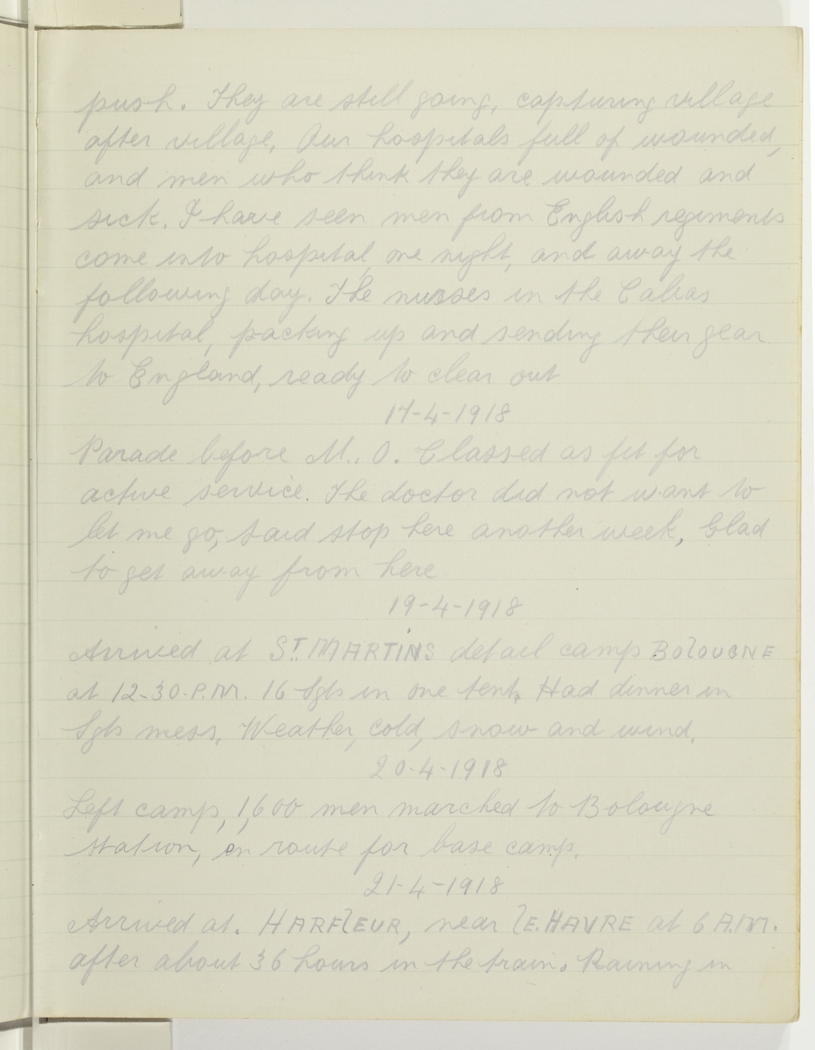 push. They are still going, capturing village
after village, Our hospitals full of wounded,
and men who think they are wounded and
sick. I have seen men from English regiments
come into hospital, one night, and away the
following day. The nurses in the Calias
hospital, packing up and sending their gear
to England, ready to clear out
17-4-1918
Parade before M.. O. Classed as fit for
active service. The doctor did not want to
let me go, said stop here another week, Glad
to get away from here
19-4-1918
Arrived at ST. MARTINS detail camp BOLOUGNE
at 12-30-P.M. 16 Sgts in one tent, Had dinner in
Sgts mess, Weather, cold, snow and wind.
20-4-1918
Left camp, 1,600 men marched to Bolougne
station, en route for base camp.
21-4-1918
Arrived at. HARFLEUR, near LE.HAVRE at 6 A.M.
after about 36 hours in the train. Raining in